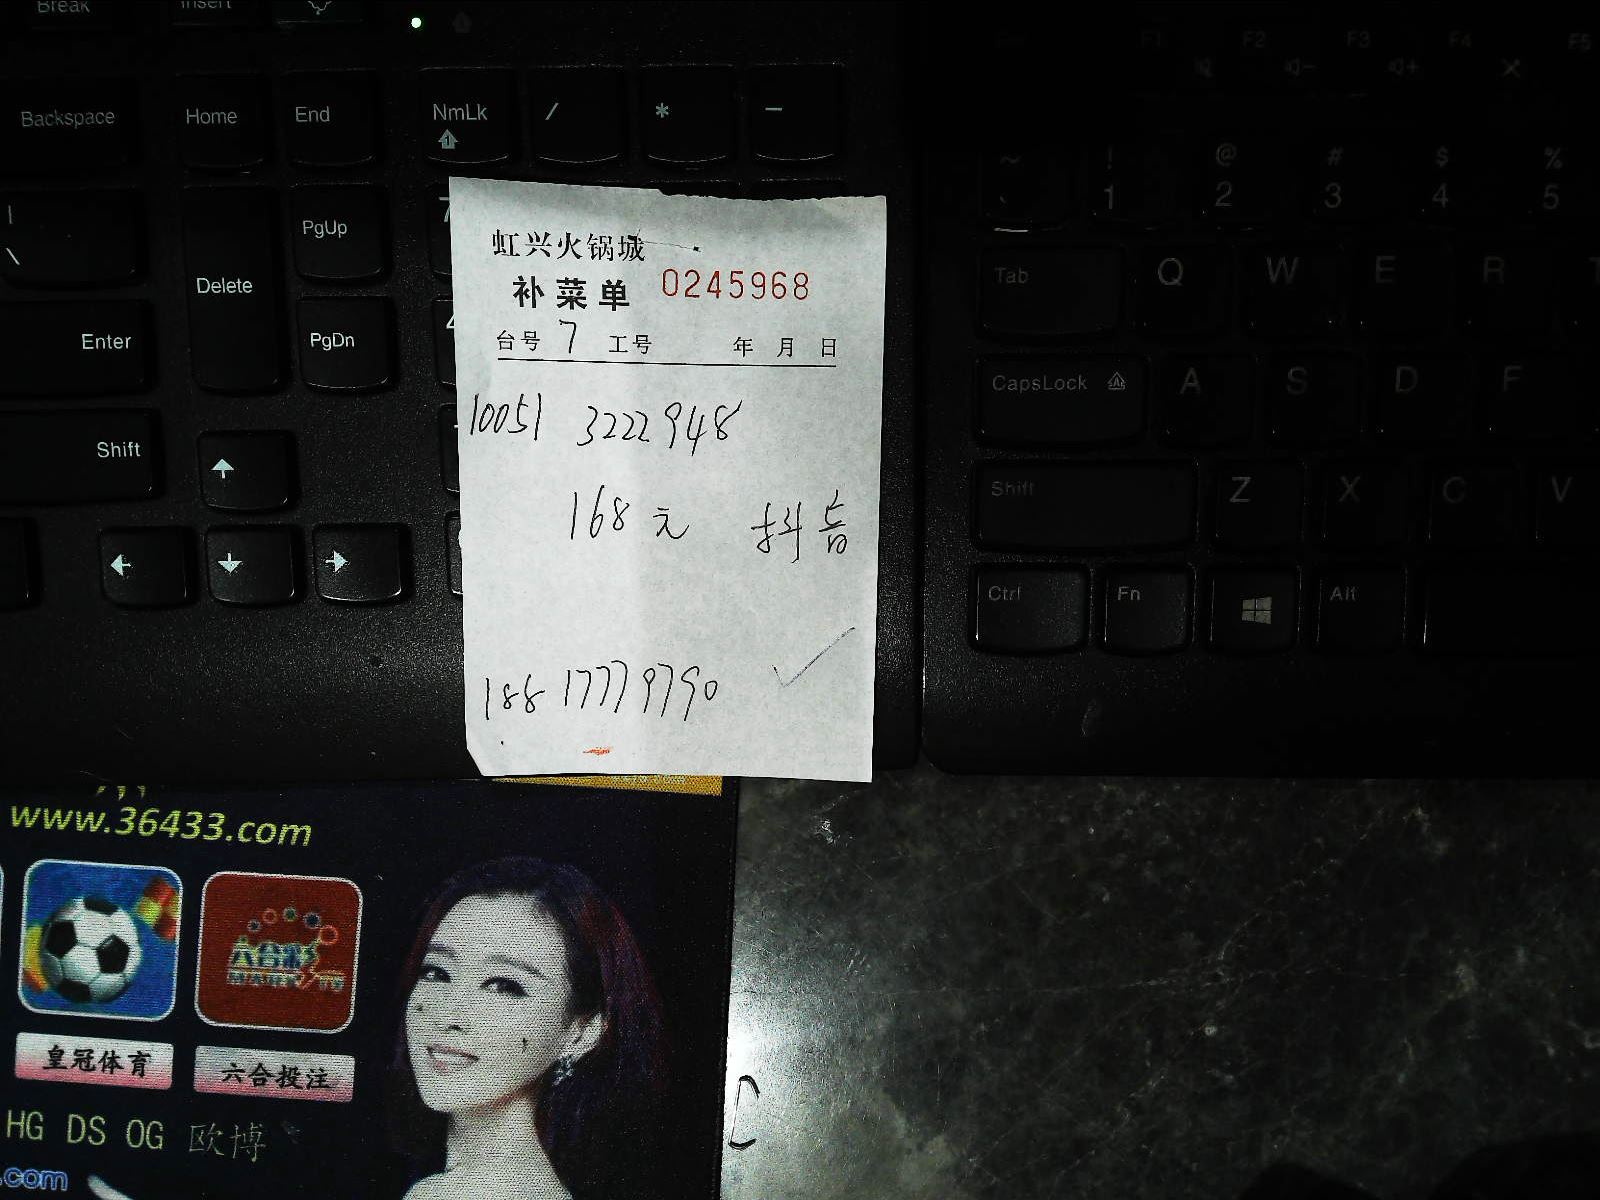 Break
Insert
Backspace
Home
End
NmLk
/
*
-
|
\
Delete
PgUp
Enter
PgDn
Shift
虹兴火锅城
补菜单 0245968
台号 7 工号 年 月 日
10051 3222948
168元 抖音
188 17779790
F1
F2
F3
F4
F5
~
! 1
@ 2
# 3
$ 4
% 5
Tab
Q
W
E
R
CapsLock
A
S
D
F
Shift
Z
X
C
V
Ctrl
Fn
Alt
www.36433.com
六合彩
皇冠体育
六合投注
HG DS OG 欧博
.com